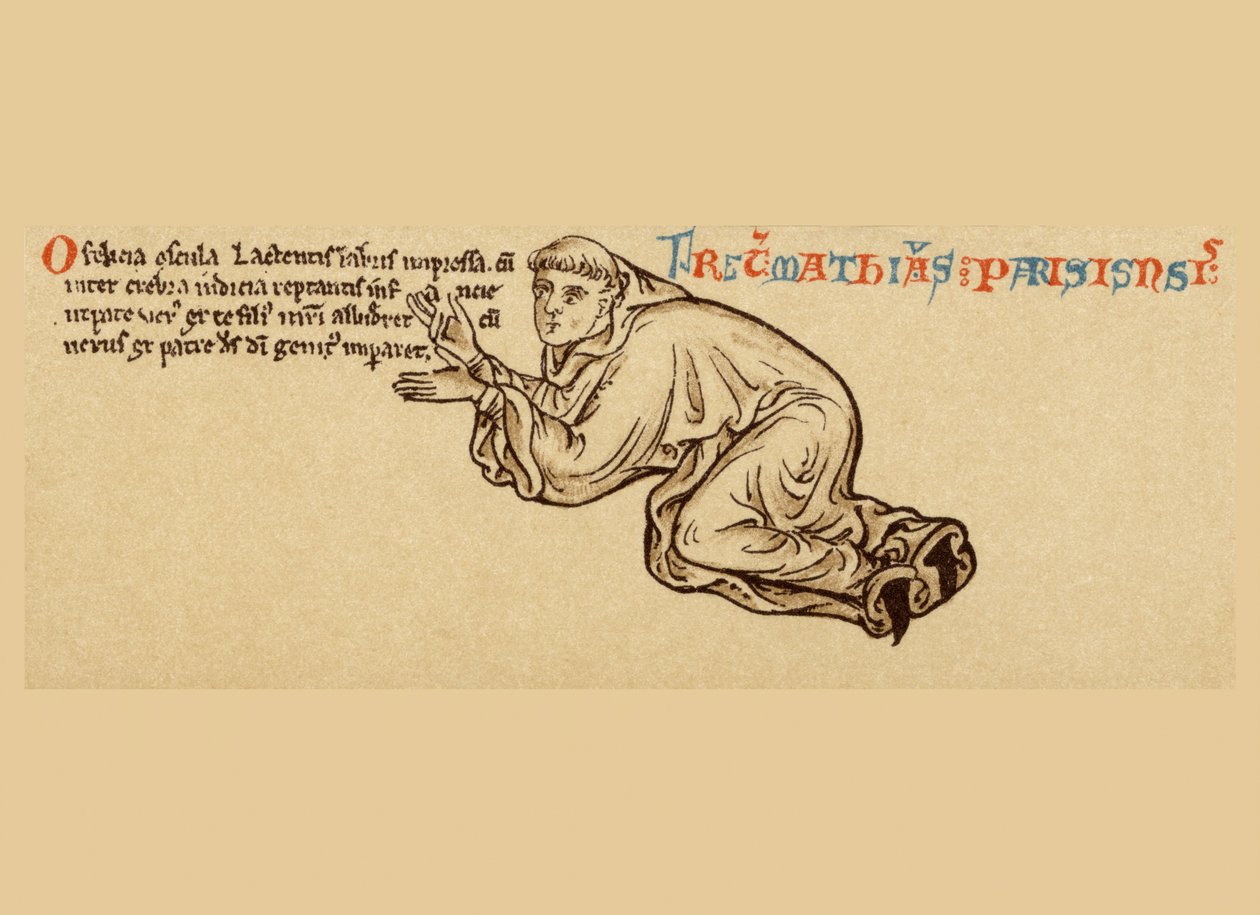 O felicia oscula Lactentis labris impressa. cū
inter crebra indicia reptantis inf a ncie
utpote verꝰ ex te filiꝰ mr̄i alluderet cū
verus ex patre dī genitꝰ imperaret.
FRET᾽ MATHIAS PARISISNSIS: